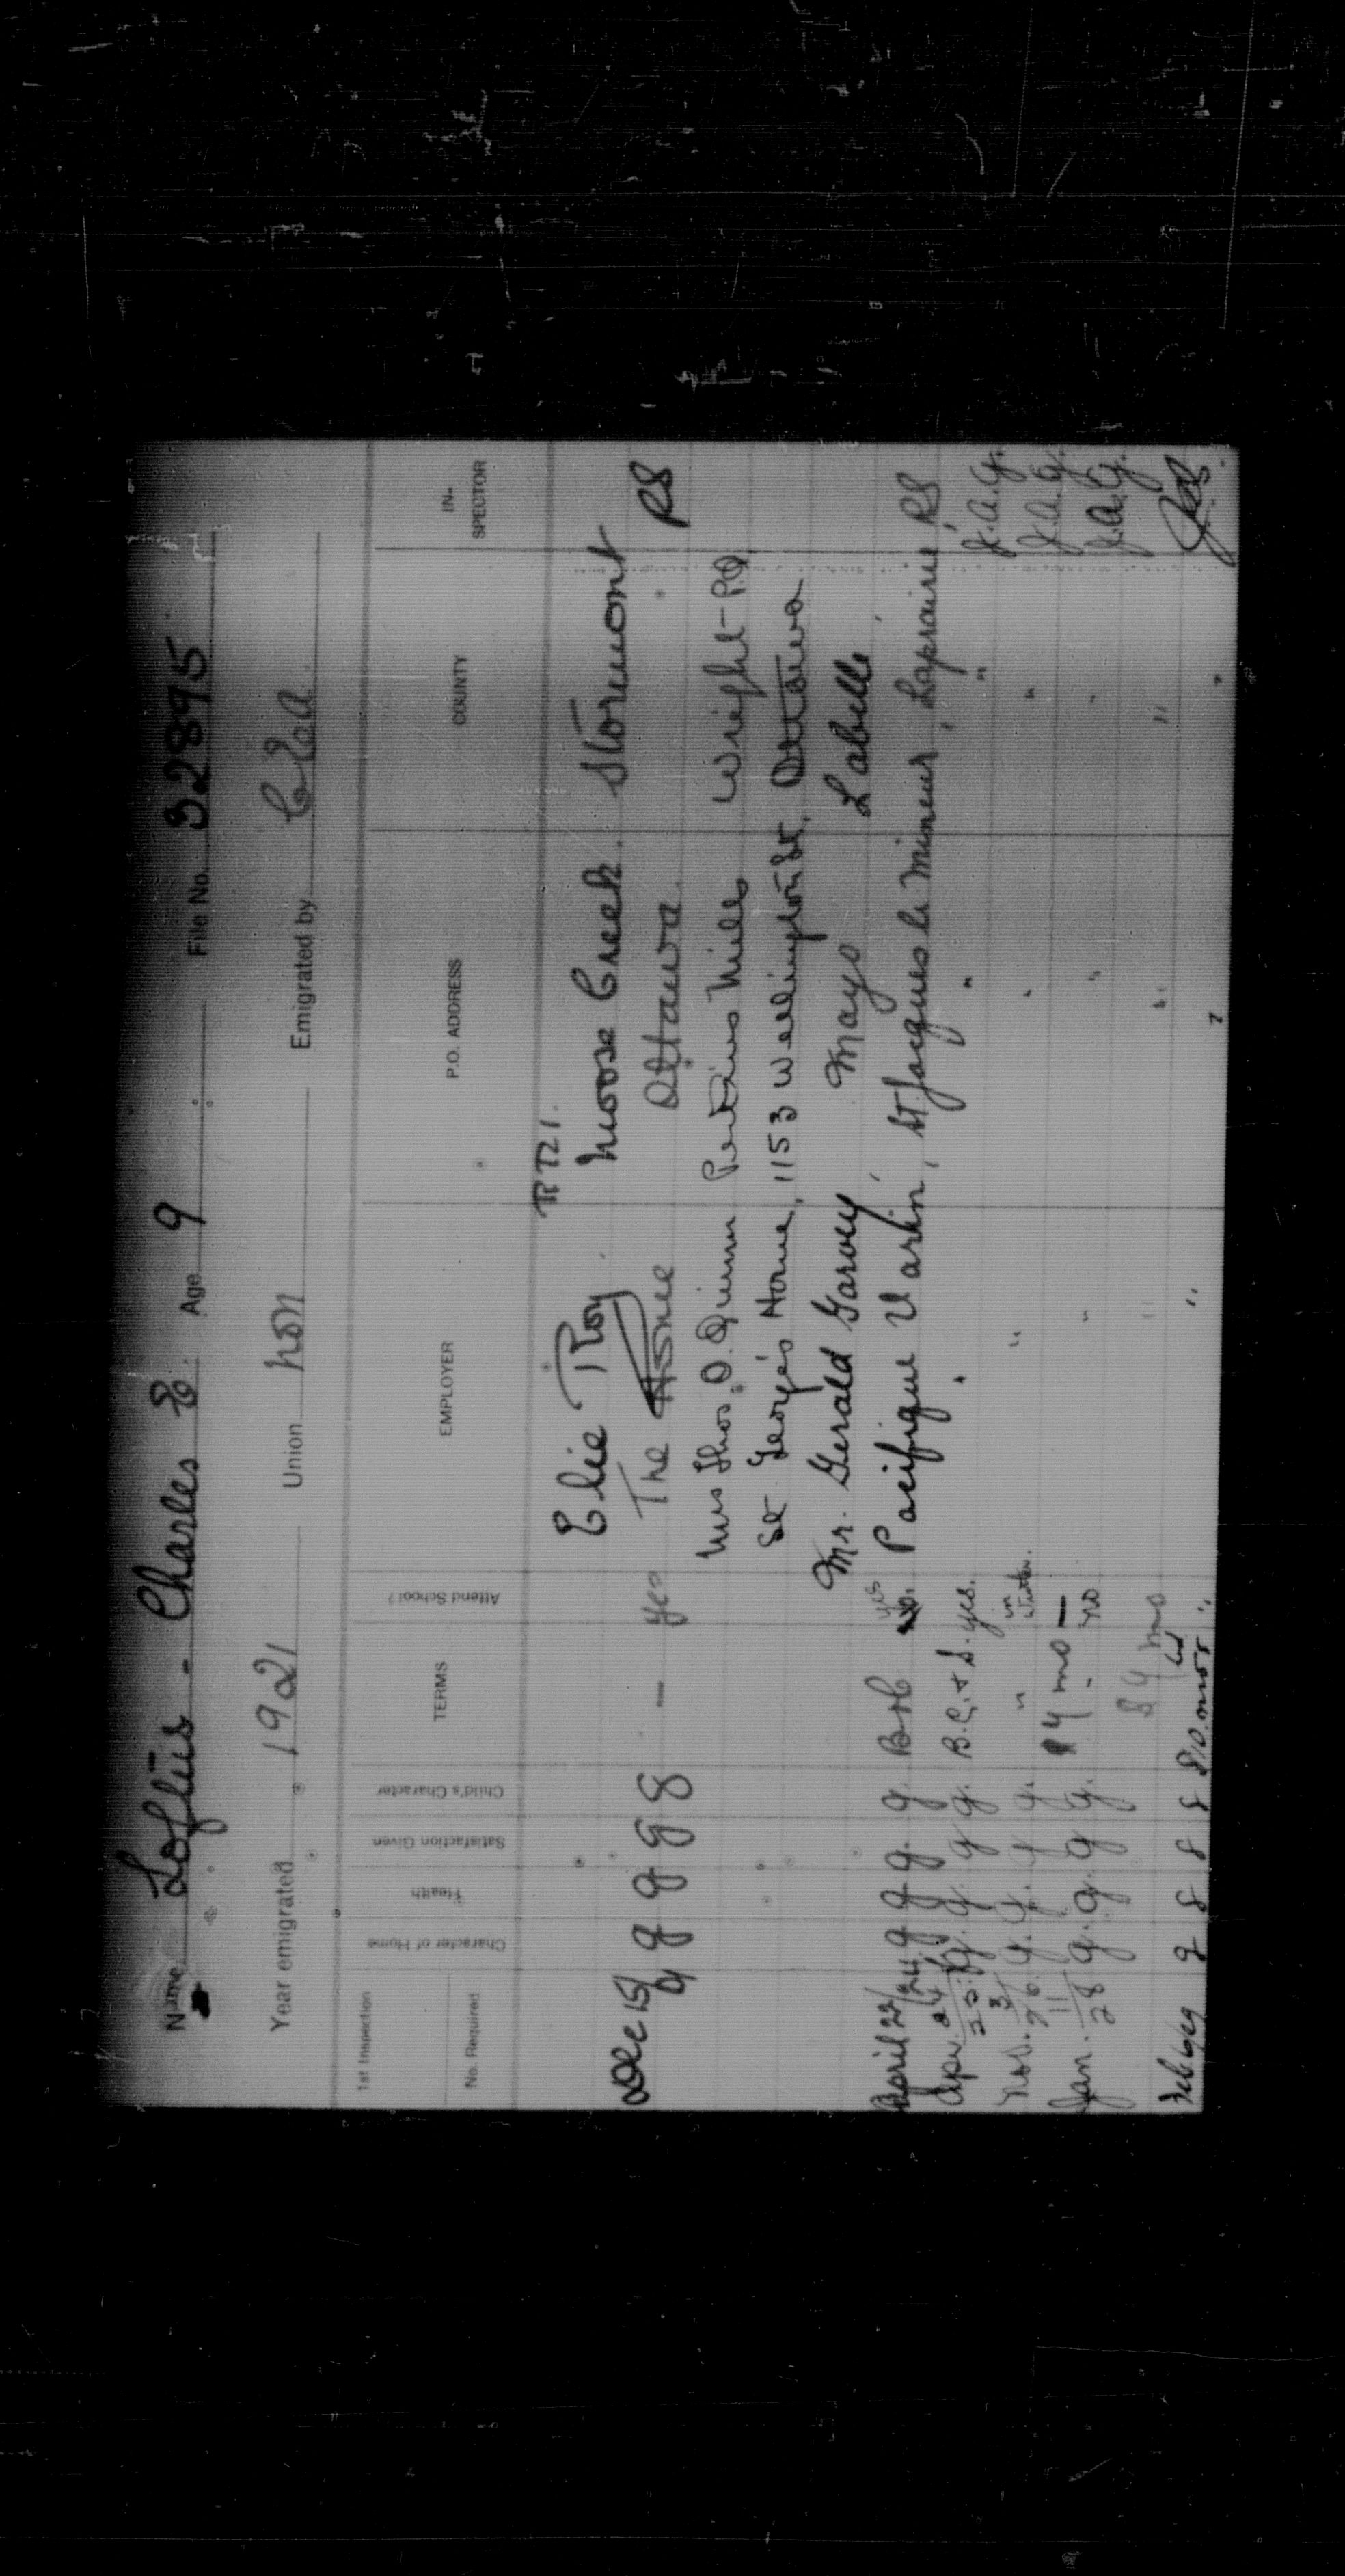 Name Loftus - Charles E. Age 9 File No. 32895
Year emigrated 1921 Union non Emigrated by
1st Inspection
No. Required
Character of Home
Health
Satisfaction Given
Child's Character
TERMS
Attend School?
EMPLOYER
P.O. ADDRESS
COUNTY
IN-
SPECTOR
RR1.
Elie Roy. Moose Creek. Stormont
Dec 15/ g g g g — yes The Home Ottawa. RS
Mrs Thos. O. Quinn Perkins Mills Wright - P.Q.
St. George's Home, 1153 Wellington St, Ottawa
Mr. Gerald Garvey Mayo Labelle
April 22/24 g g g. g. B+C no. yes Pacifique Varin, St. Jacques le Mineur, Laprairie, RS
Apr. 24/25 g. g. g g. B.C. + S. yes. " " " J.A.G.
Nov. 3/26 g. g. g g. " in Winter. " " " J.A.G.
$4 mo —
Jan. 11/28 g. g. g g. " no " " " J.A.G.
$9 mo " " "
Feb g g g g $10. mos " " "